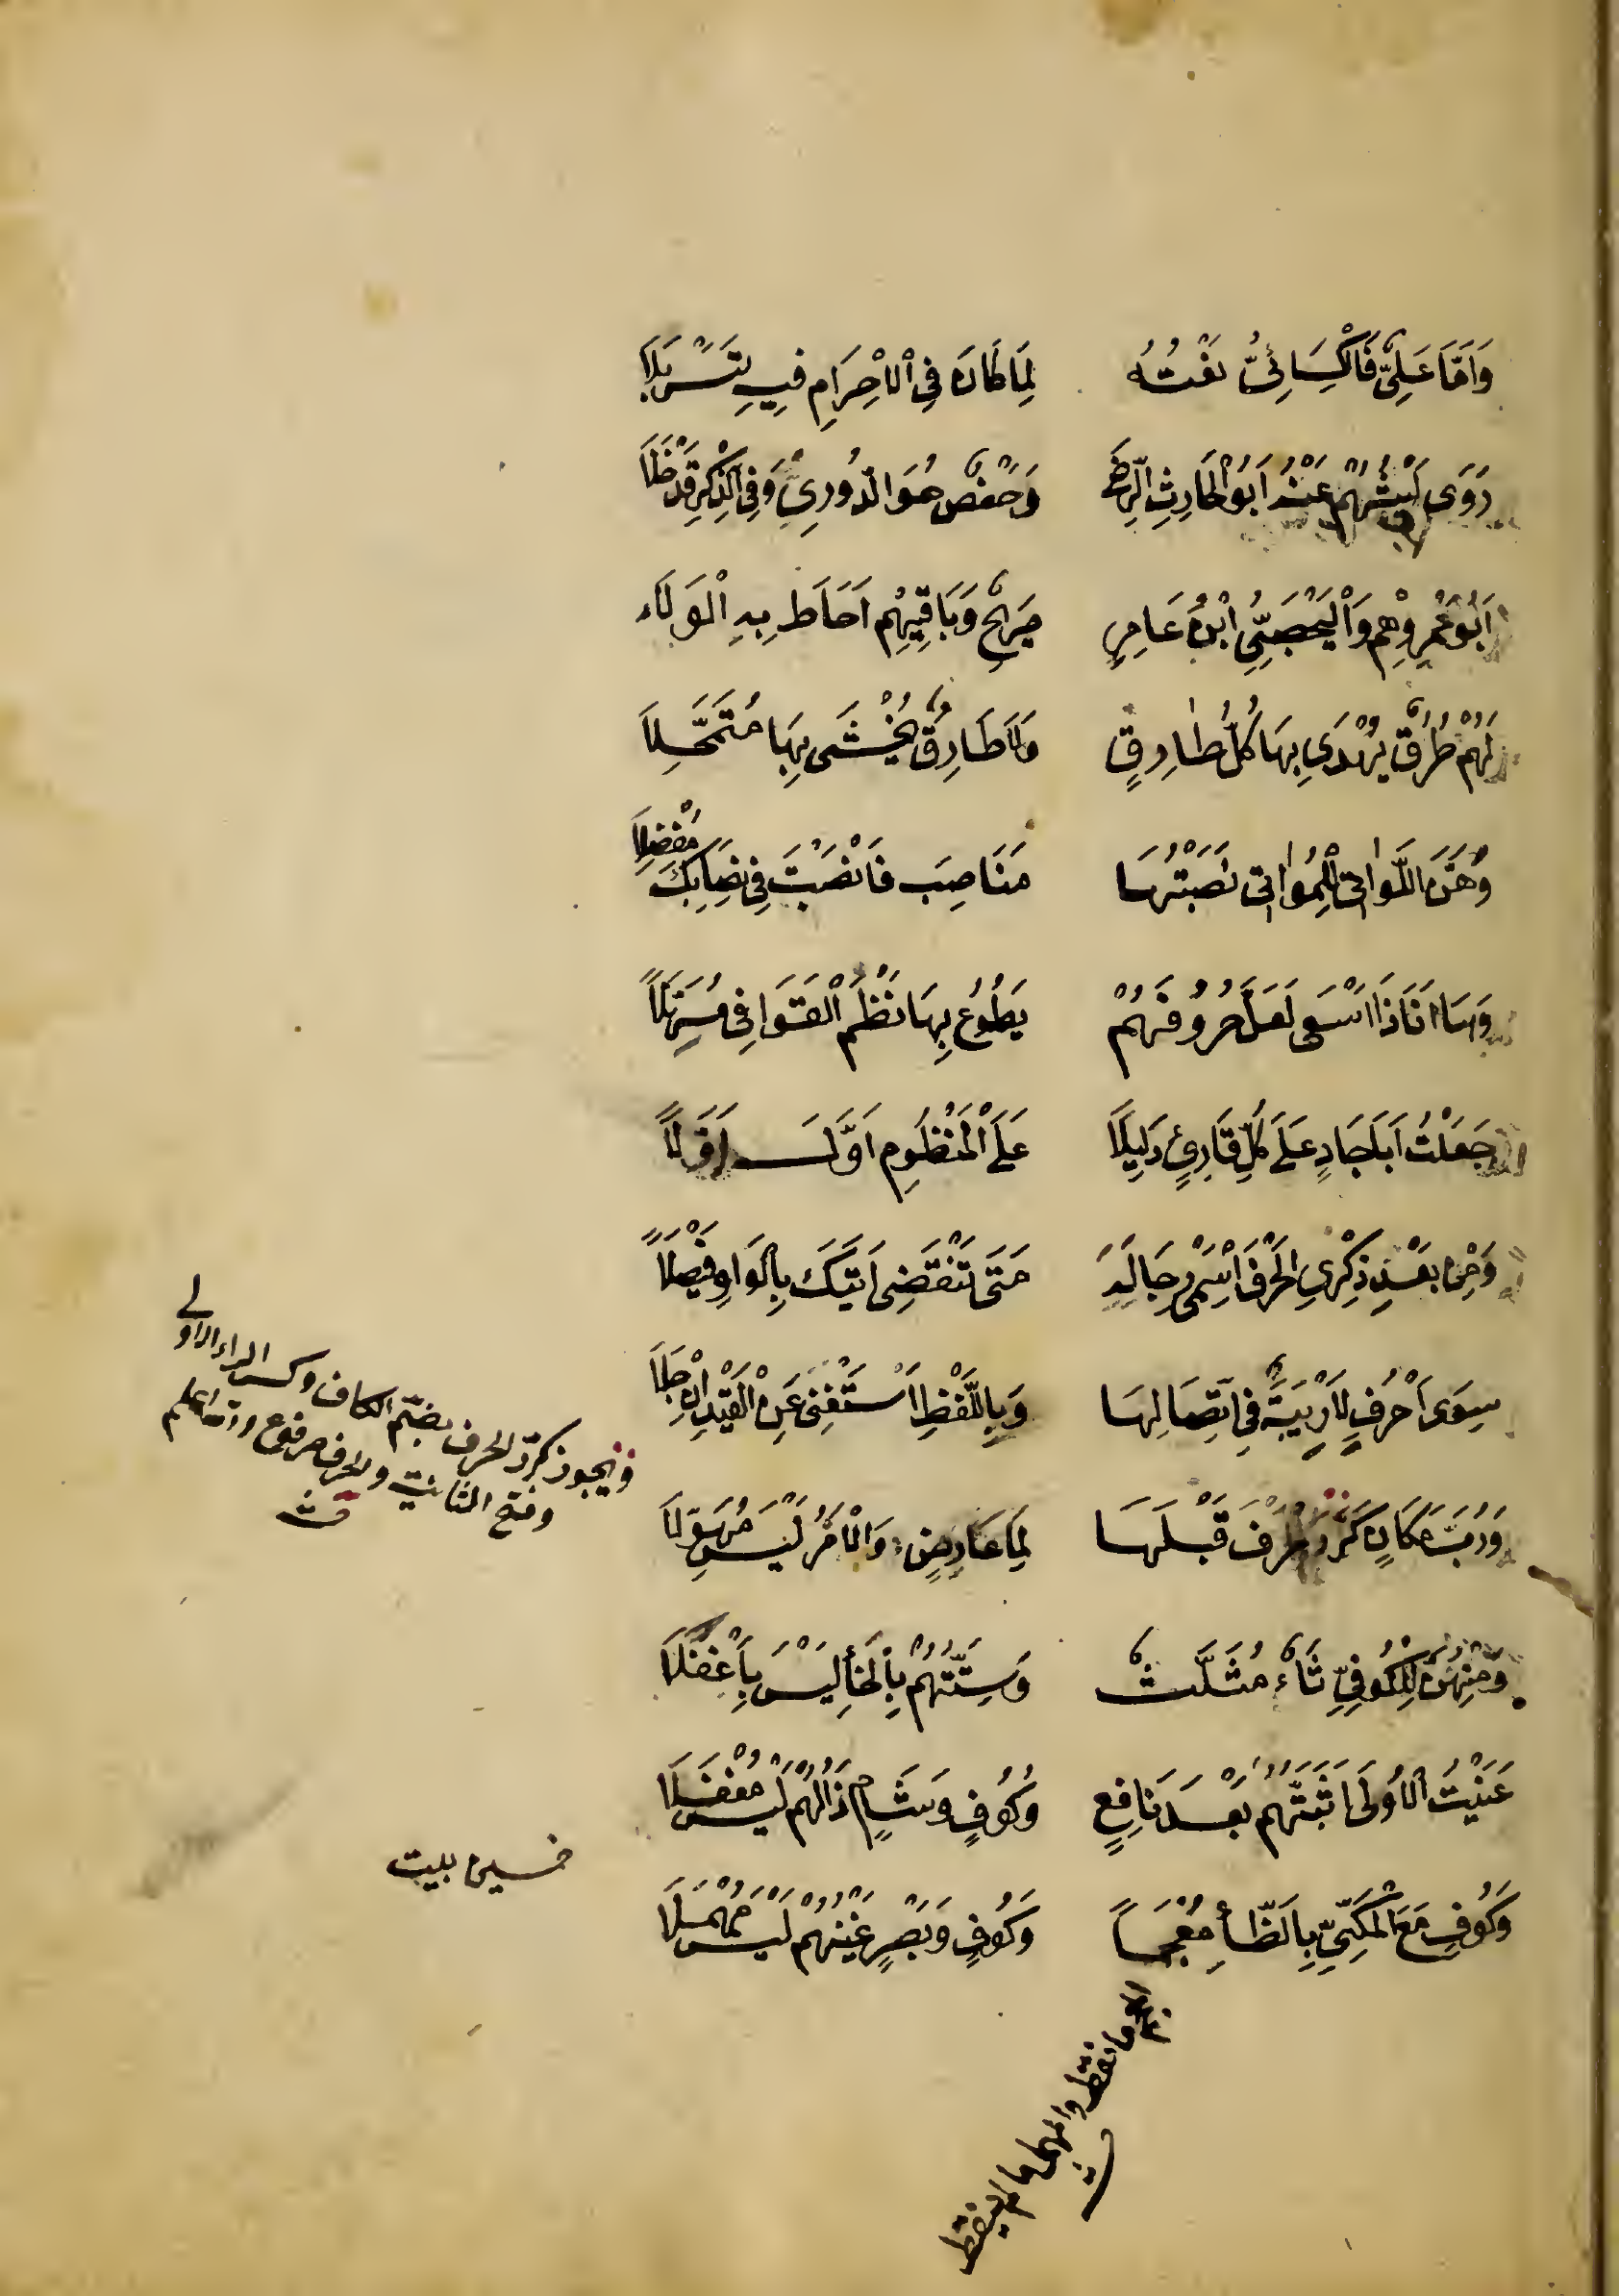 وَاَمَّا عَلِيٌّ فَالْكِسَائِيُّ نَعْتُهُ لِمَا كَانَ فِي الْاِحْرَامِ فِيهِ تَسَرْبَلَا
رَوَى لَيْثُهُمْ عَنْهُ اَبُو الْحَارِثِ الرِّضَى وَحَفْصٌ هُوَ الدُّورِيُّ وَفِي الذِّكْرِ قَدْ خَلَا
اَبُو عَمْرِوهِمْ وَالْيَحْصَبِيُّ ابْنُ عَامِرٍ صَرِيحٌ وَبَاقِيهِمْ اَحَاطَ بِهِ الْوَلَاء
لَهُمْ طُرُقٌ يُهْدَى بِهَا كُلُّ طَارِقٍ وَلَا طَارِقٌ يُخْشَى بِهَا مُتَمَحِّلَا
وَهُنَّ اللَّوَاتِي لِلْمُوَاتِي نَصَبْتُهَا مَنَاصِبَ فَانْصَبْ فِي نِصَابِكَ مُفْضِلَا
وَهَا اَنَا ذَا اَسْعَى لَعَلَّ حُرُوفَهُمْ يَطُوعُ بِهَا نَظْمُ الْقَوَافِي مُسَهِّلَاً
جَعَلْتُ اَبَا جَادٍ عَلَى كُلِّ قَارِئٍ دَلِيلَاً عَلَى الْمَنْظُومِ اَوَّلَ اَوَّلَاً
وَمِنْ بَعْدِ ذِكْرِي الْحَرْفَ اُسْمِي رِجَالَهُ مَتَى تَنْقَضِي اَتِيكَ بِالْوَاوِ فَيْصَلَاً
سِوَى اَحْرُفٍ لَا رِيبَةٌ فِي اتِّصَالِهَا وَبِاللَّفْظِ اَسْتَغْنِي عَنِ الْقَيْدِ اِنْ جَلَا
وَرُبَّ مَكَانٍ كَرَّرَ الْحَرْفَ قَبْلَهَا لِمَا عَارِضٍ وَالْاَمْرُ لَيْسَ مُهَوِّلَا
وَمِنْهُنَّ لِلْكُوفِيِّ ثَاءٌ مُثَلَّثٌ وَسِتَّتُهُمْ بِالْخَاءِ لَيْسَ بِاَغْفَلَا
عَنَيْتُ الْاُولَى اَثْبَتُّهُمْ بَعْدَ نَافِعٍ وَكُوفٍ وَشَامٍ ذَالُهُمْ لَيْسَ مُغْفَلَا
وَكُوفٍ مَعَ الْمَكِّيِّ بِالظَّاءِ مُعْجَمَاً وَكُوفٍ وَبَصْرٍ غَيْنُهُمْ لَيْسَ مُهْمَلَا
ويجوز كرر الحرف بضم الكاف وكسر الراء الاولى
وفتح الثانية والحرف مرفوع والله اعلم
خمسين بيت
ما نقط والمهمل ما لم ينقط